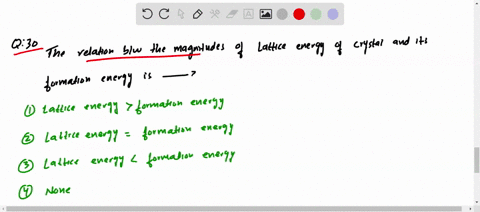 Q:30 The relation b/w the magnitudes of lattice energy of crystal and its
formation energy is
① Lattice energy > formation energy
② Lattice energy = formation energy
③ Lattice energy < formation energy
④ None